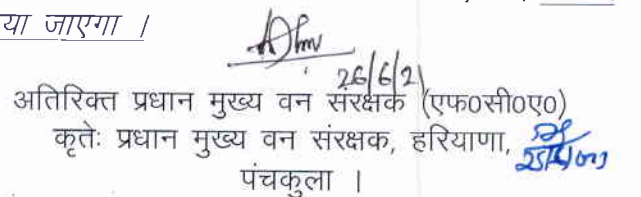 या जाएगा ।
26/6/21
अतिरिक्त प्रधान मुख्य वन संरक्षक (एफ0सी0ए0)
कृतेः प्रधान मुख्य वन संरक्षक, हरियाणा,
पंचकुला ।